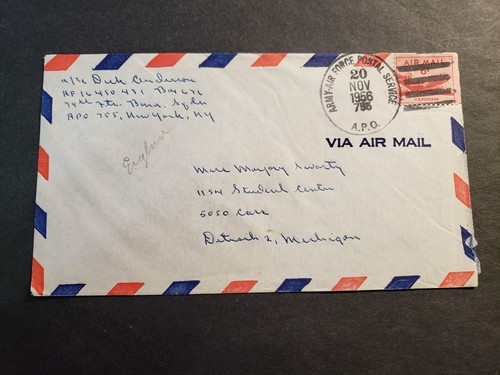 a/1c Dick Anderson
AF 16450471 Box 676
Bmr. Sqdn
APO 755, New York, NY
ARMY-AIR FORCE POSTAL SERVICE
20
NOV
1956
A.P.O.
AIR MAIL
6¢
VIA AIR MAIL
England
Marjory Swarty
Student Center
5050 Cass
Detroit 2, Michigan